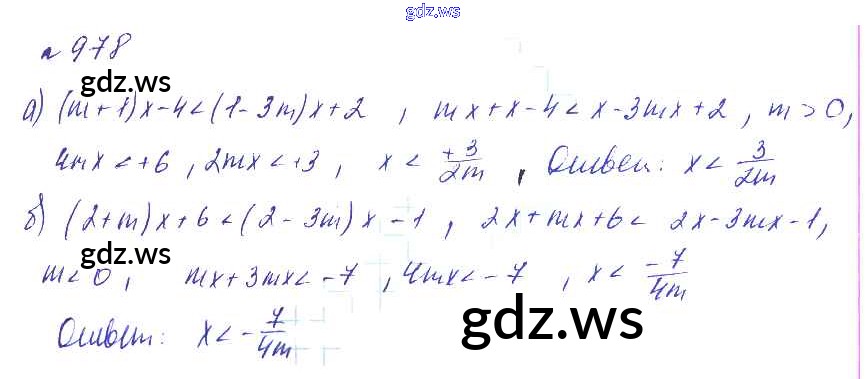 gdz.ws
№ 978
gdz.ws
а) (m+1)x-4<(1-3m)x+2 , mx+x-4<x-3mx+2 , m>0,
4mx<+6 , 2mx<+3 , x< +3/2m , Ответ: x< 3/2m
б) (2+m)x+6<(2-3m)x-1 , 2x+mx+6< 2x-3mx-1,
gdz.ws
m<0 , mx+3mx<-7 , 4mx<-7 , x< -7/4m
Ответ: x<- 7/4m
gdz.ws